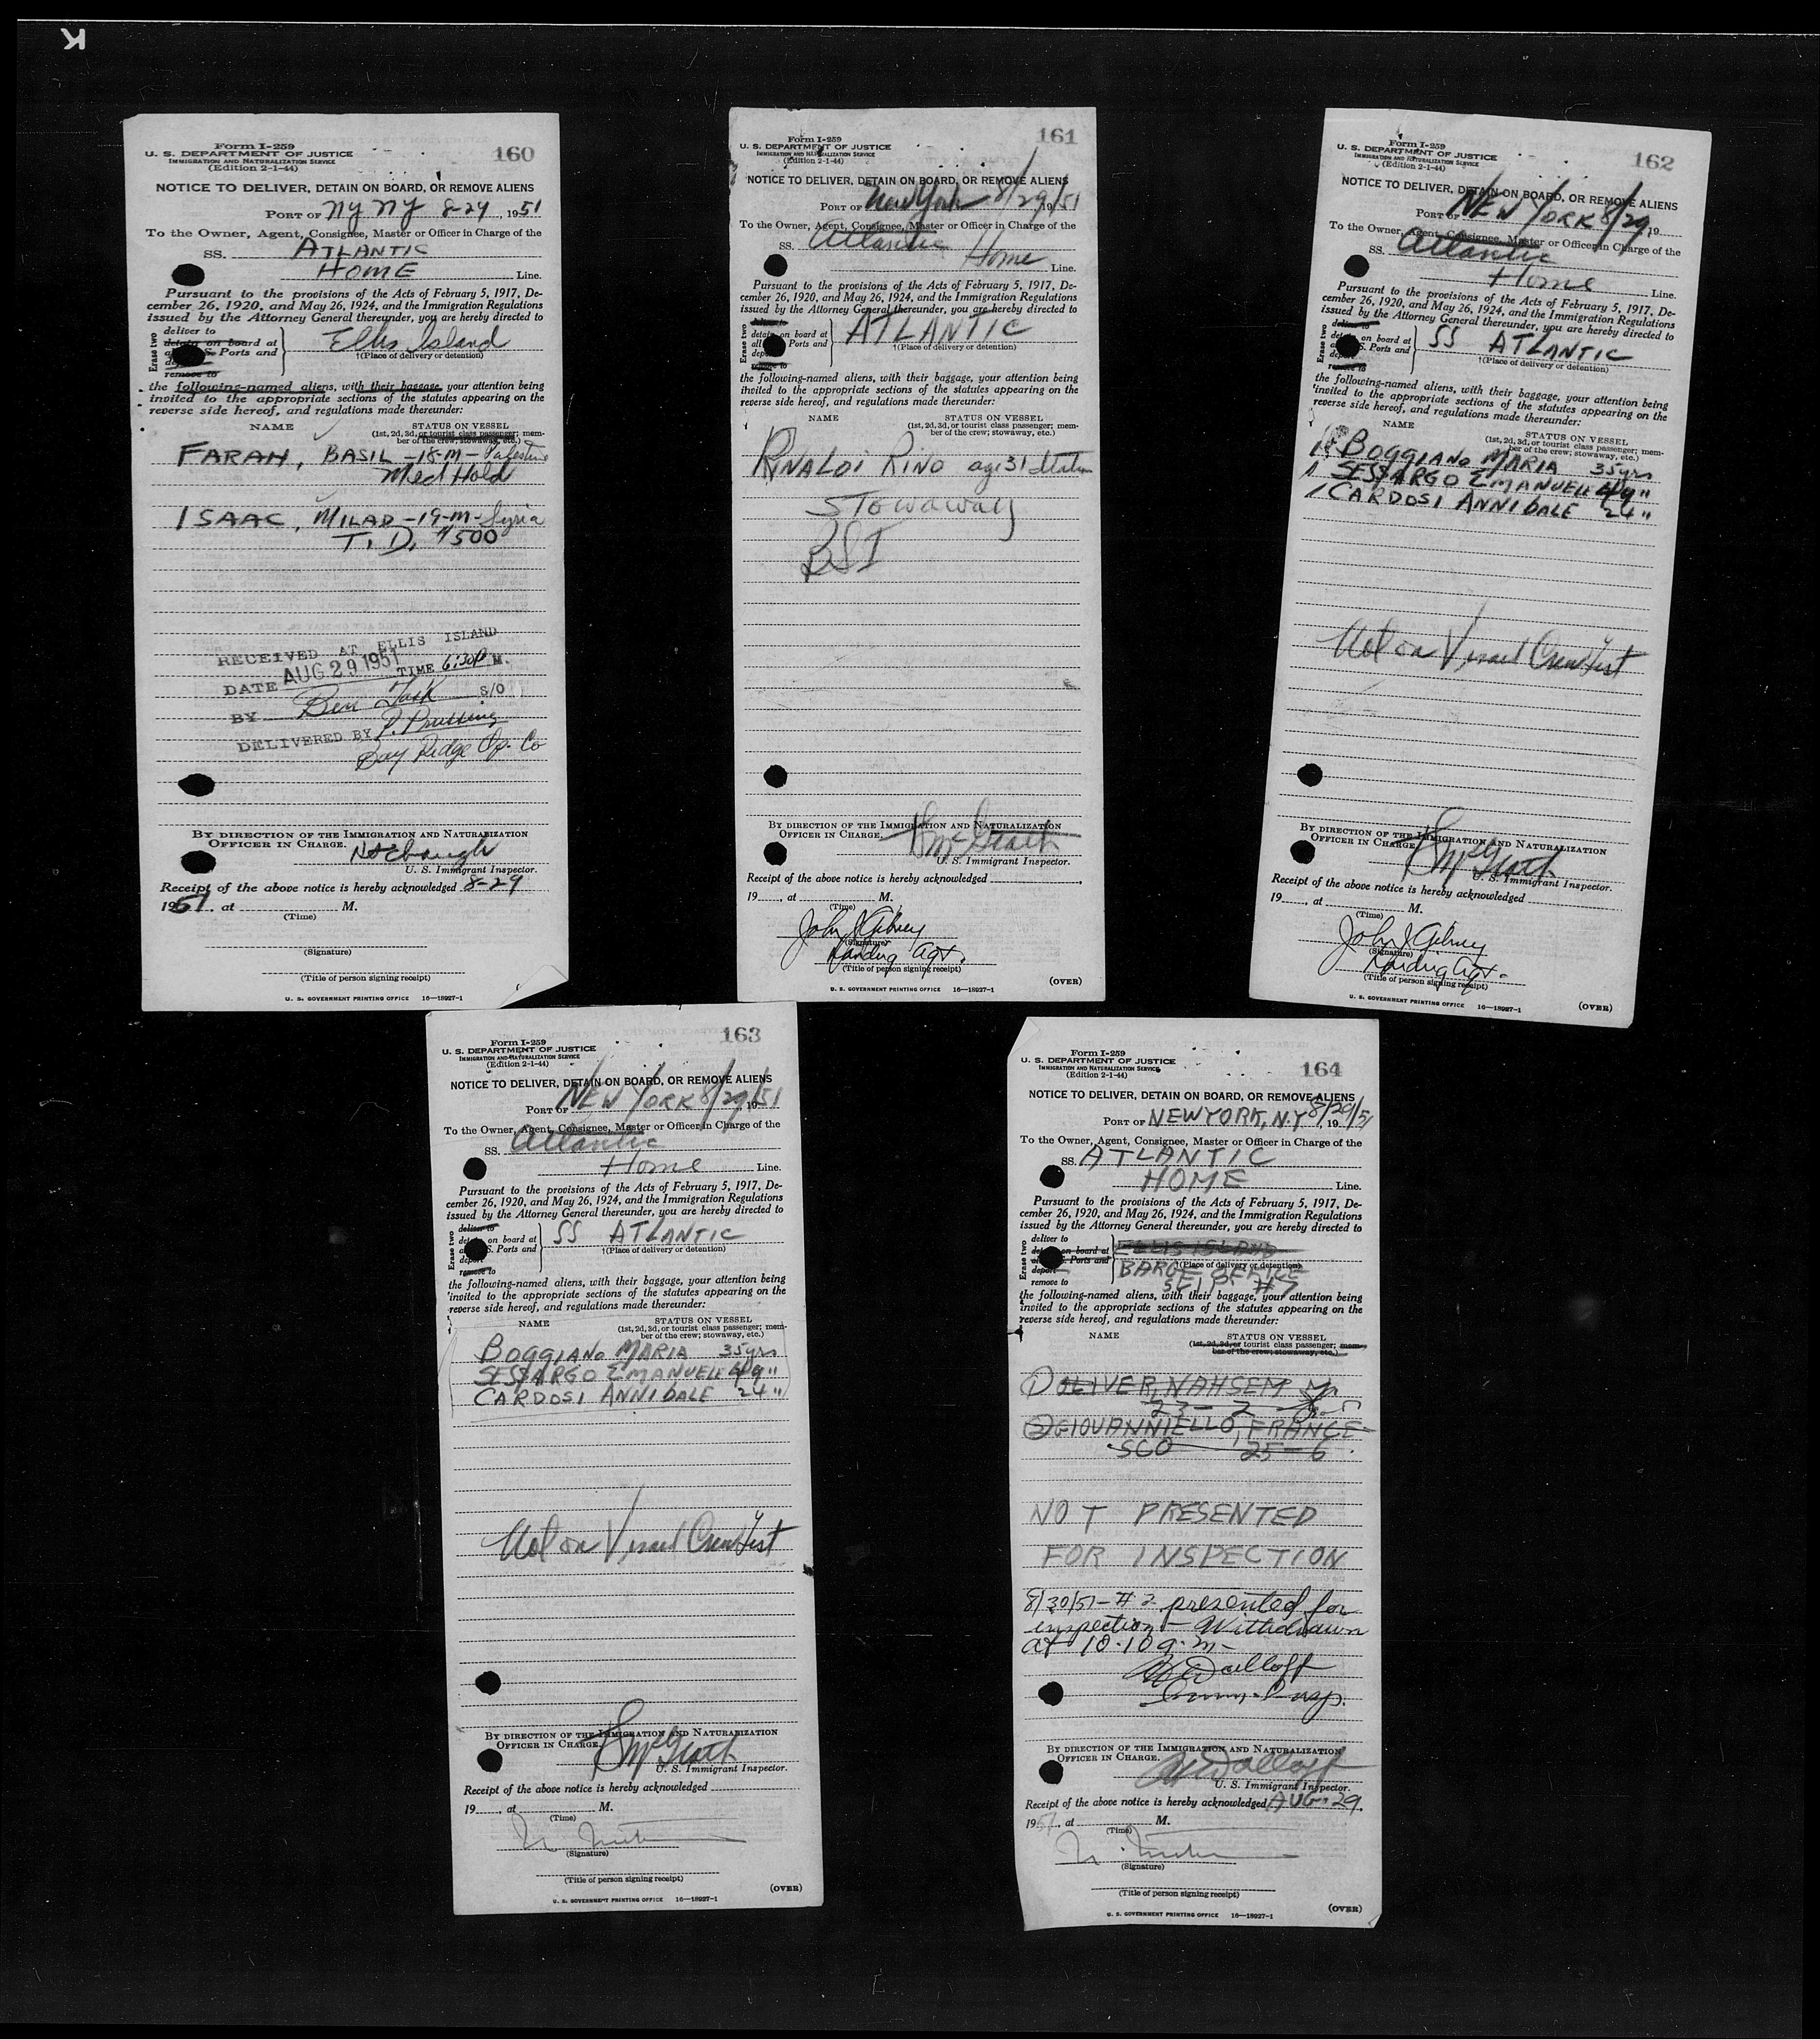 K
Form I-259
U. S. DEPARTMENT OF JUSTICE
IMMIGRATION AND NATURALIZATION SERVICE
(Edition 2-1-44)
160
NOTICE TO DELIVER, DETAIN ON BOARD, OR REMOVE ALIENS
PORT OF NY NY 8-29, 1951
To the Owner, Agent, Consignee, Master or Officer in Charge of the
SS. ATLANTIC
HOME Line.
Pursuant to the provisions of the Acts of February 5, 1917, De-
cember 26, 1920, and May 26, 1924, and the Immigration Regulations
issued by the Attorney General thereunder, you are hereby directed to
Erase two
deliver to
detain on board at
S. Ports and
remove to
Ellis Island
†(Place of delivery or detention)
the following-named aliens, with their baggage, your attention being
invited to the appropriate sections of the statutes appearing on the
reverse side hereof, and regulations made thereunder:
NAME STATUS ON VESSEL
(1st, 2d, 3d, or tourist class passenger; mem-
ber of the crew; stowaway, etc.)
FARAH, BASIL -18-M- Palestine
Med Hold
ISAAC, MILAD -19-M- Syria
T. D. $500
RECEIVED AT ELLIS ISLAND
DATE AUG 29 1951 TIME 6:30P M.
BY Ben S/O
DELIVERED BY P.
Bay Ridge Op. Co
BY DIRECTION OF THE IMMIGRATION AND NATURALIZATION
OFFICER IN CHARGE.
U. S. Immigrant Inspector.
Receipt of the above notice is hereby acknowledged 8-29
1951, at M.
(Time)
(Signature)
(Title of person signing receipt)
U. S. GOVERNMENT PRINTING OFFICE 16—18927-1
Form I-259
U. S. DEPARTMENT OF JUSTICE
IMMIGRATION AND NATURALIZATION SERVICE
(Edition 2-1-44)
161
NOTICE TO DELIVER, DETAIN ON BOARD, OR REMOVE ALIENS
PORT OF New York 8/29/51 19
To the Owner, Agent, Consignee, Master or Officer in Charge of the
SS. Atlantic
Home Line.
Pursuant to the provisions of the Acts of February 5, 1917, De-
cember 26, 1920, and May 26, 1924, and the Immigration Regulations
issued by the Attorney General thereunder, you are hereby directed to
Erase two
deliver to
detain on board at
all Ports and
remove to
ATLANTIC
†(Place of delivery or detention)
the following-named aliens, with their baggage, your attention being
invited to the appropriate sections of the statutes appearing on the
reverse side hereof, and regulations made thereunder:
NAME STATUS ON VESSEL
(1st, 2d, 3d, or tourist class passenger; mem-
ber of the crew; stowaway, etc.)
RINALDI RINO age 31 Italian
Stowaway
BSI
BY DIRECTION OF THE IMMIGRATION AND NATURALIZATION
OFFICER IN CHARGE. McGrath
U. S. Immigrant Inspector.
Receipt of the above notice is hereby acknowledged
19, at M.
(Time)
John J Gibney
(Signature)
Landing Agt.
(Title of person signing receipt)
U. S. GOVERNMENT PRINTING OFFICE 16—18927-1
(OVER)
Form I-259
U. S. DEPARTMENT OF JUSTICE
IMMIGRATION AND NATURALIZATION SERVICE
(Edition 2-1-44)
162
NOTICE TO DELIVER, DETAIN ON BOARD, OR REMOVE ALIENS
PORT OF NEW YORK 8/29, 19
To the Owner, Agent, Consignee, Master or Officer in Charge of the
SS. Atlantic
Home Line.
Pursuant to the provisions of the Acts of February 5, 1917, De-
cember 26, 1920, and May 26, 1924, and the Immigration Regulations
issued by the Attorney General thereunder, you are hereby directed to
Erase two
deliver to
on board at
S. Ports and
remove to
SS ATLANTIC
†(Place of delivery or detention)
the following-named aliens, with their baggage, your attention being
invited to the appropriate sections of the statutes appearing on the
reverse side hereof, and regulations made thereunder:
NAME STATUS ON VESSEL
(1st, 2d, 3d, or tourist class passenger; mem-
ber of the crew; stowaway, etc.)
BOGGIANO MARIA 35 yrs
SESSARGO EMANUELE 49 "
CARDOSI ANNIBALE 24 "
Not on Vessel Crew List
BY DIRECTION OF THE IMMIGRATION AND NATURALIZATION
OFFICER IN CHARGE. McGrath
U. S. Immigrant Inspector.
Receipt of the above notice is hereby acknowledged
19, at M.
(Time)
John J Gibney
(Signature)
Landing Agt.
(Title of person signing receipt)
U. S. GOVERNMENT PRINTING OFFICE 16—18927-1
(OVER)
Form I-259
U. S. DEPARTMENT OF JUSTICE
IMMIGRATION AND NATURALIZATION SERVICE
(Edition 2-1-44)
163
NOTICE TO DELIVER, DETAIN ON BOARD, OR REMOVE ALIENS
PORT OF NEW YORK 8/29/51 19
To the Owner, Agent, Consignee, Master or Officer in Charge of the
SS. Atlantic
Home Line.
Pursuant to the provisions of the Acts of February 5, 1917, De-
cember 26, 1920, and May 26, 1924, and the Immigration Regulations
issued by the Attorney General thereunder, you are hereby directed to
Erase two
deliver to
on board at
S. Ports and
deport
remove to
SS ATLANTIC
†(Place of delivery or detention)
the following-named aliens, with their baggage, your attention being
invited to the appropriate sections of the statutes appearing on the
reverse side hereof, and regulations made thereunder:
NAME STATUS ON VESSEL
(1st, 2d, 3d, or tourist class passenger; mem-
ber of the crew; stowaway, etc.)
BOGGIANO MARIA 35 yrs
SESSARGO EMANUELE 49 "
CARDOSI ANNIBALE 24 "
Not on Vessel Crew List
BY DIRECTION OF THE IMMIGRATION AND NATURALIZATION
OFFICER IN CHARGE. McGrath
U. S. Immigrant Inspector.
Receipt of the above notice is hereby acknowledged
19, at M.
(Time)
(Signature)
(Title of person signing receipt)
U. S. GOVERNMENT PRINTING OFFICE 16—18927-1
(OVER)
Form I-259
U. S. DEPARTMENT OF JUSTICE
IMMIGRATION AND NATURALIZATION SERVICE
(Edition 2-1-44)
164
NOTICE TO DELIVER, DETAIN ON BOARD, OR REMOVE ALIENS
PORT OF NEW YORK, N.Y 8/29/51 19
To the Owner, Agent, Consignee, Master or Officer in Charge of the
SS. ATLANTIC
HOME Line.
Pursuant to the provisions of the Acts of February 5, 1917, De-
cember 26, 1920, and May 26, 1924, and the Immigration Regulations
issued by the Attorney General thereunder, you are hereby directed to
Erase two
deliver to
on board at
S. Ports and
deport
remove to
ELLIS ISLAND
†(Place of delivery or detention)
BARGE OFFICE
SLIP #7
the following-named aliens, with their baggage, your attention being
invited to the appropriate sections of the statutes appearing on the
reverse side hereof, and regulations made thereunder:
NAME STATUS ON VESSEL
(1st, 2d, 3d, or tourist class passenger; mem-
ber of the crew; stowaway, etc.)
① OLIVER, NAHSEM
23-2
② GIOVANNIELLO, FRANCE-
SCO 25-6
NOT PRESENTED
FOR INSPECTION
8/30/51 - #2 presented for
inspection - Withdrawn
at 10.10 a.m-
Imm. Insp.
BY DIRECTION OF THE IMMIGRATION AND NATURALIZATION
OFFICER IN CHARGE.
U. S. Immigrant Inspector.
Receipt of the above notice is hereby acknowledged AUG. 29.
1951, at M.
(Time)
(Signature)
(Title of person signing receipt)
U. S. GOVERNMENT PRINTING OFFICE 16—18927-1
(OVER)